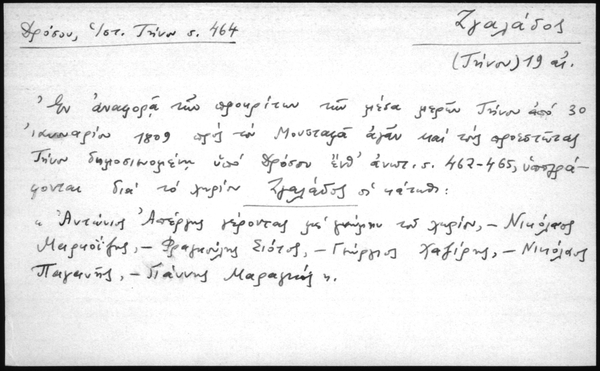 Δρόσου, Ἱστ. Τήνου σ. 464
Σγαλάδος
(Τήνου) 19 αἰ.
Ἐν ἀναφορᾷ τῶν προκρίτων τῶν μέσα μερῶν Τήνου ἀπό 30
ἰανουαρίου 1809 πρός τόν Μουσταφᾶ ἀγᾶν καί τούς προεστῶτας
Τήνου δημοσιευομένῃ ὑπό Δρόσου ἔνθ' ἀνωτ. σ. 462-465, ὑπογρά-
φονται διά τό χωρίον Σγαλάδος οἱ κάτωθι:
" Ἀντώνιος Ἀπέργης γέροντας μέ γνώμην τοῦ χωρίου, - Νικόλαος
Μαρκουΐζης, - Φραγκούλης Σιότος, - Γεώργιος Χαζίρης, - Νικόλαος
Παγανής, - Γιάννης Μαραγκός ".